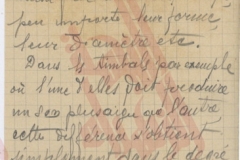 peu importe leur forme,
leur diamètre etc.
Dans 4 timbales par exemple
où l'une d'elles doit produire
un son plus aigu que l'autre
cette différence s'obtient
simplement dans le degré